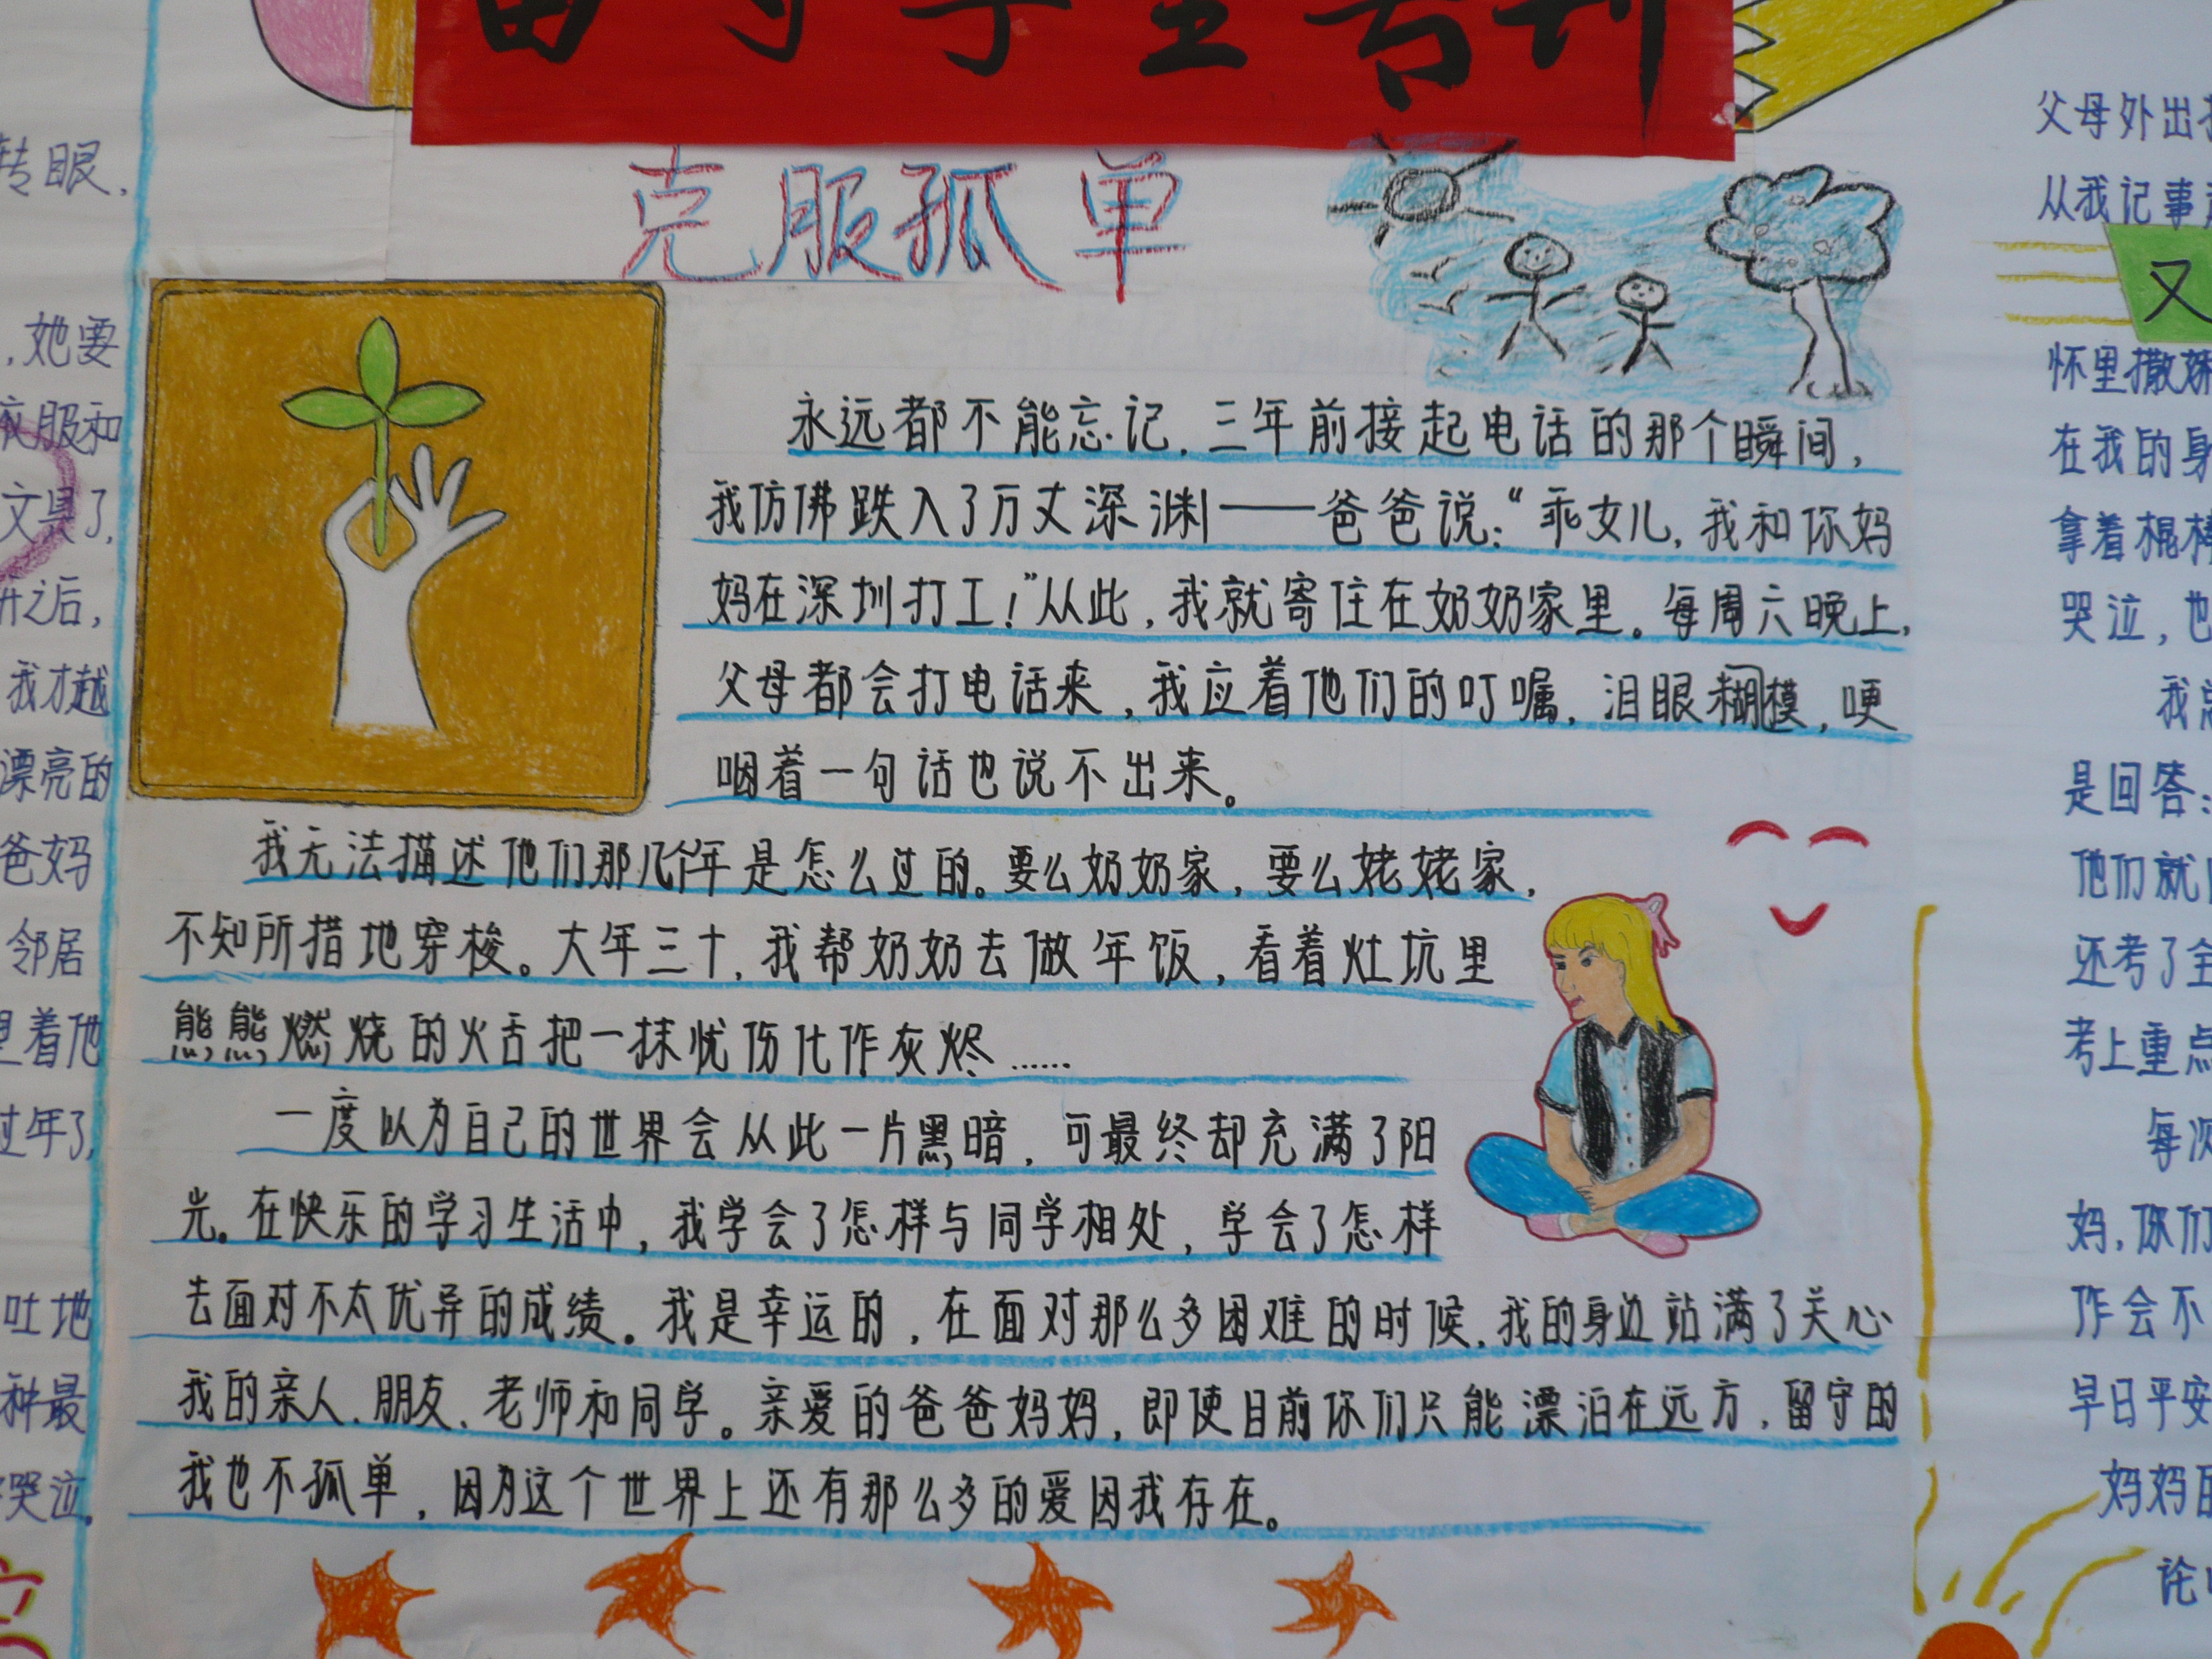 转眼,
,她要
衣服和
文具了,
之后,
我才越
漂亮的
爸妈
邻居
着他
过年了,
吐地
种最
哭泣。
留守学生专刊
克服孤单
永远都不能忘记,三年前接起电话的那个瞬间,
我仿佛跌入了万丈深渊——爸爸说:“乖女儿,我和你妈
妈在深圳打工!”从此,我就寄住在奶奶家里。每周六晚上,
父母都会打电话来,我应着他们的叮嘱,泪眼糊模,哽
咽着一句话也说不出来。
我无法描述他们那几个年是怎么过的。要么奶奶家,要么姥姥家,
不知所措地穿梭。大年三十,我帮奶奶去做年饭,看着灶坑里
熊熊燃烧的火舌把一抹忧伤化作灰烬……
一度以为自己的世界会从此一片黑暗,可最终却充满了阳
光。在快乐的学习生活中,我学会了怎样与同学相处,学会了怎样
去面对不太优异的成绩。我是幸运的,在面对那么多困难的时候,我的身边站满了关心
我的亲人、朋友、老师和同学。亲爱的爸爸妈妈,即使目前你们只能漂泊在远方,留守的
我也不孤单,因为这个世界上还有那么多的爱因我存在。
父母外出
从我记事
又
怀里撒娇
在我的身
拿着棍棒
哭泣,也
我
是回答:
他们就
还考了全
考上重点
每次
妈,你们
作会不
早日平安
妈妈的
论